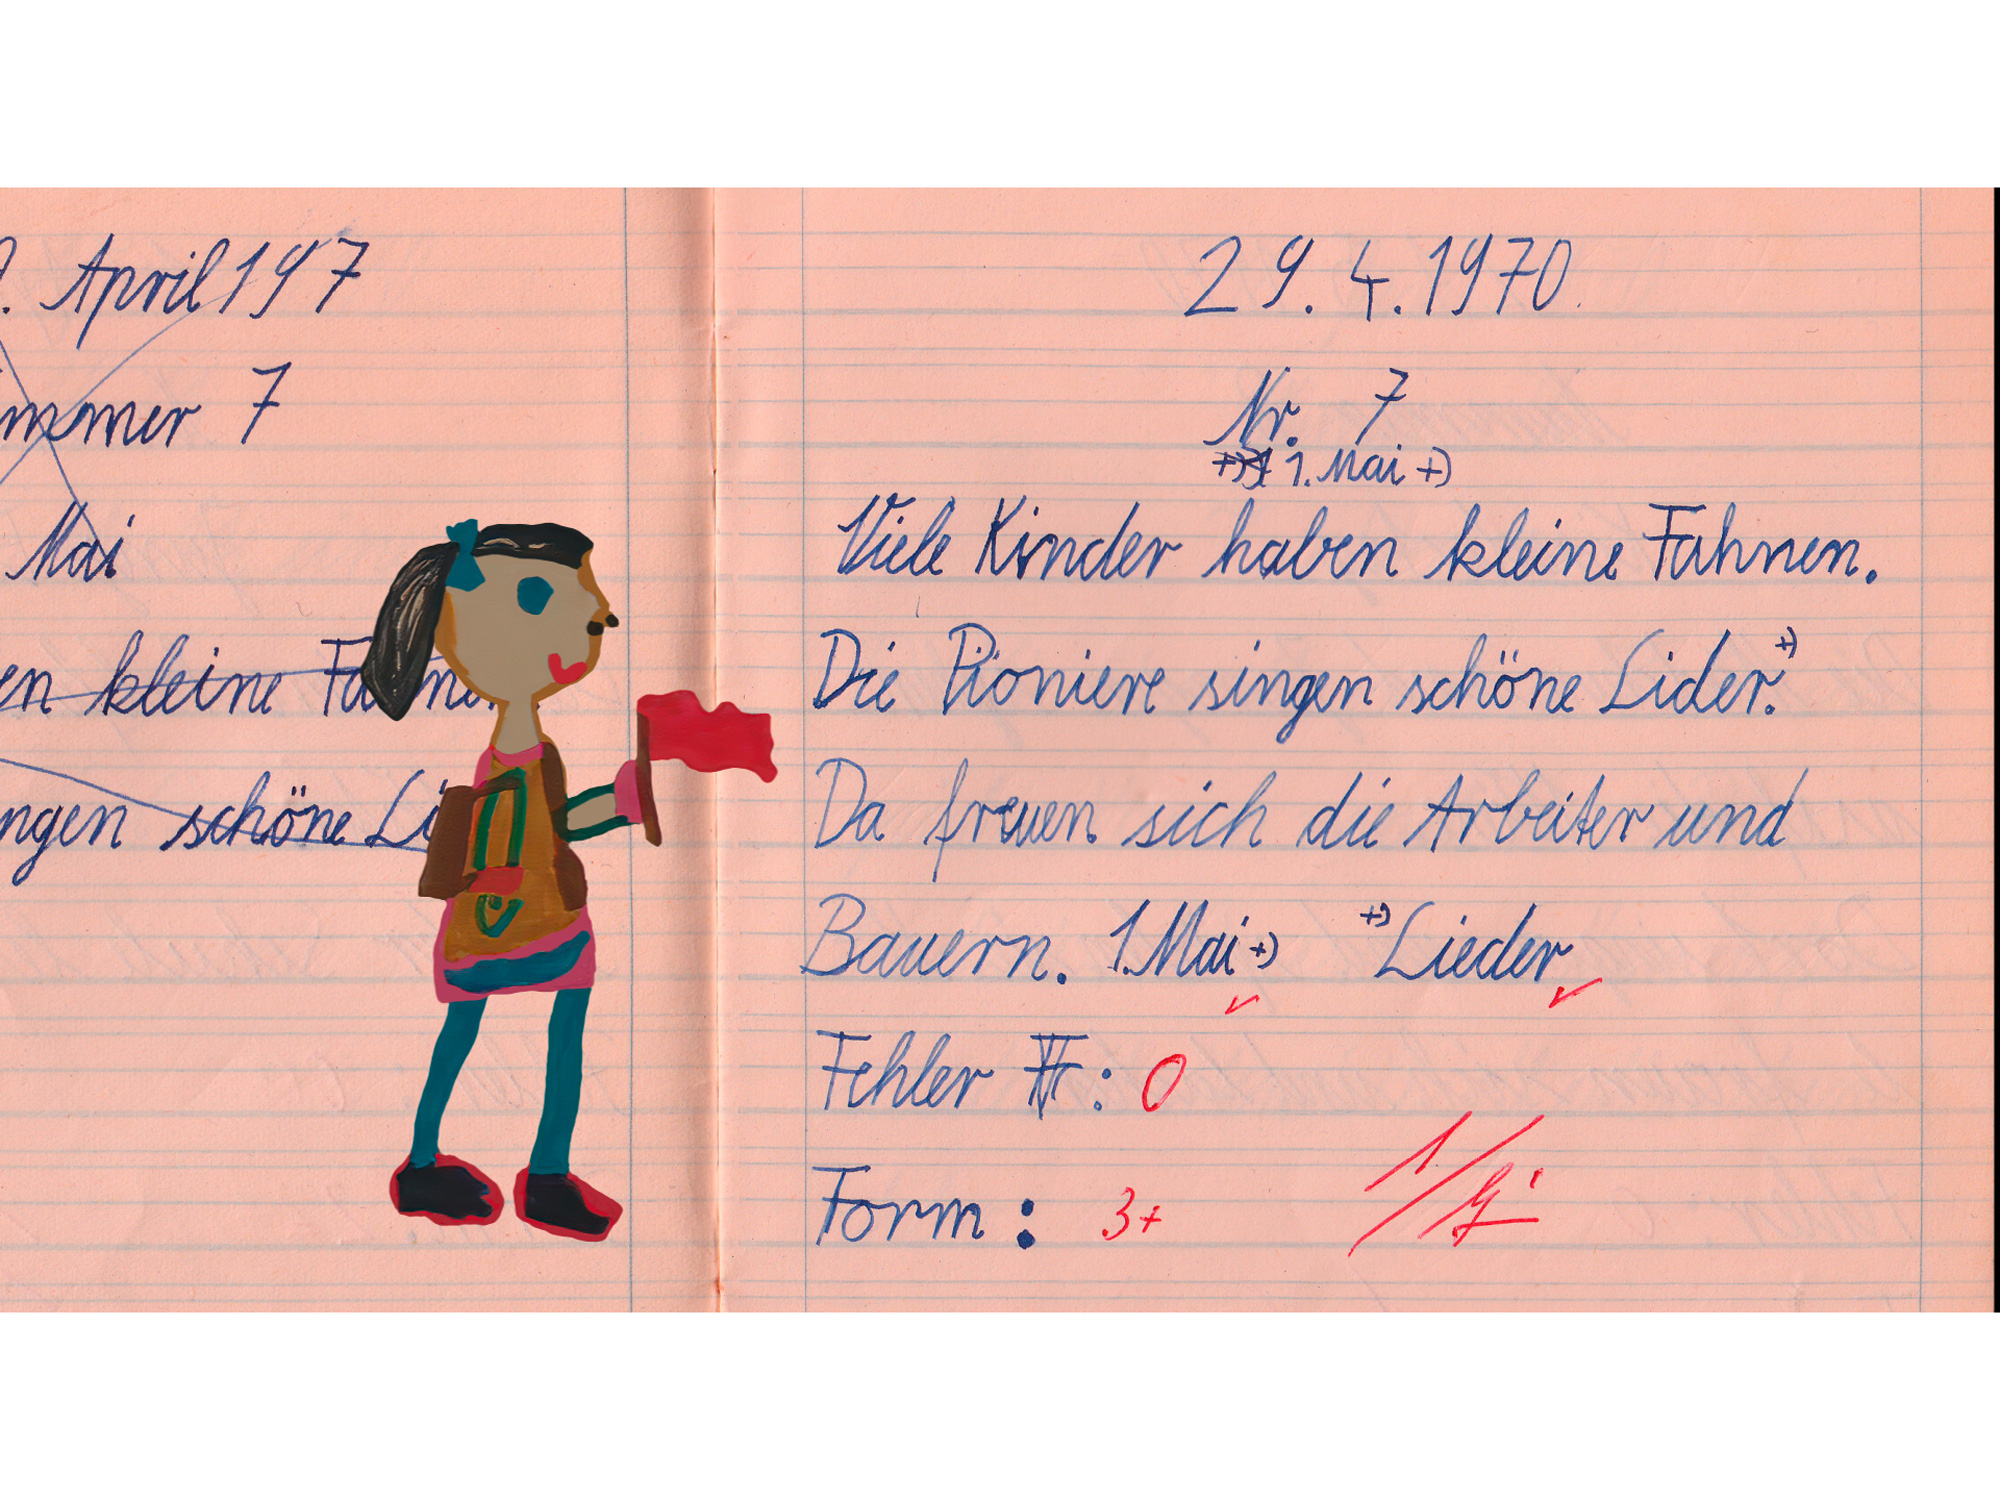 . April 197
mmer 7
Mai
en kleine Fa
ngen schöne Li
29.4.1970.
Nr. 7
1. Mai +)
Viele Kinder haben kleine Fahnen.
Die Pioniere singen schöne Lider.+)
Da freuen sich die Arbeiter und
Bauern. 1. Mai +) +) Lieder
Fehler : 0
Form : 3+